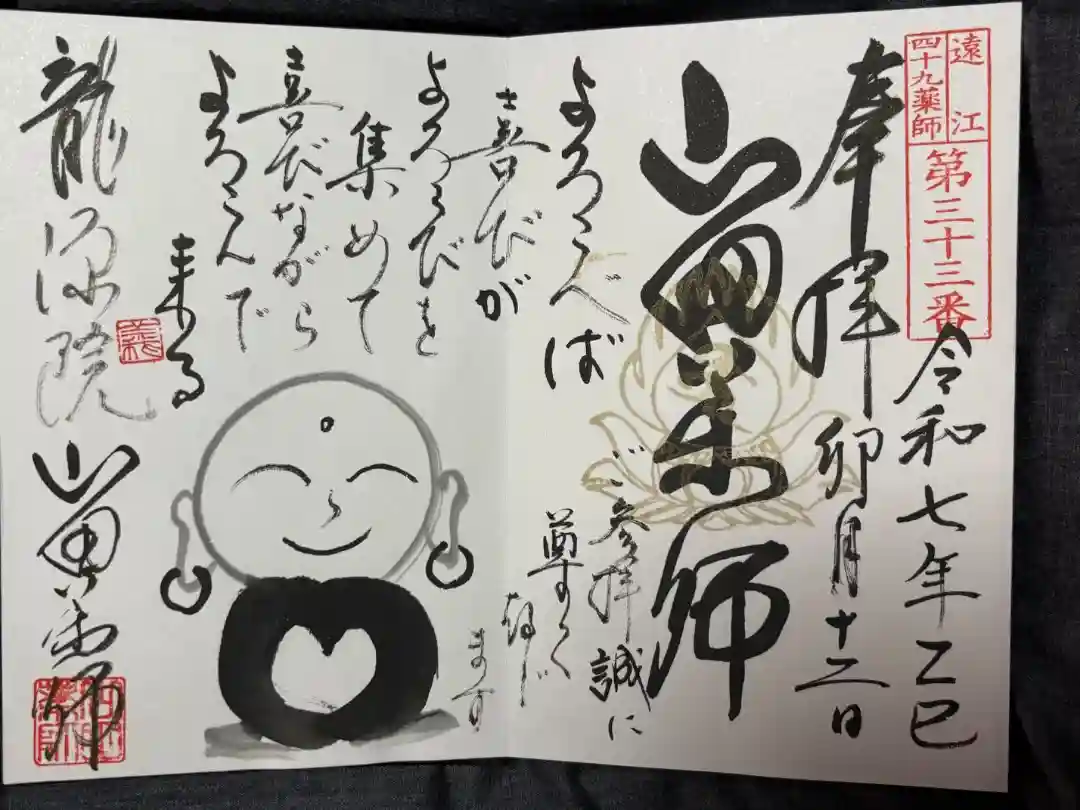 遠江
四十九薬師
第三十三番
令和七年乙巳
卯月十二日
奉拝
山田薬師
ご参拝誠に
尊く存じ
ます
よろこべば
喜びが
よろこびを
集めて
喜びながら
よろこんで
来る
龍源院
義
山田薬師